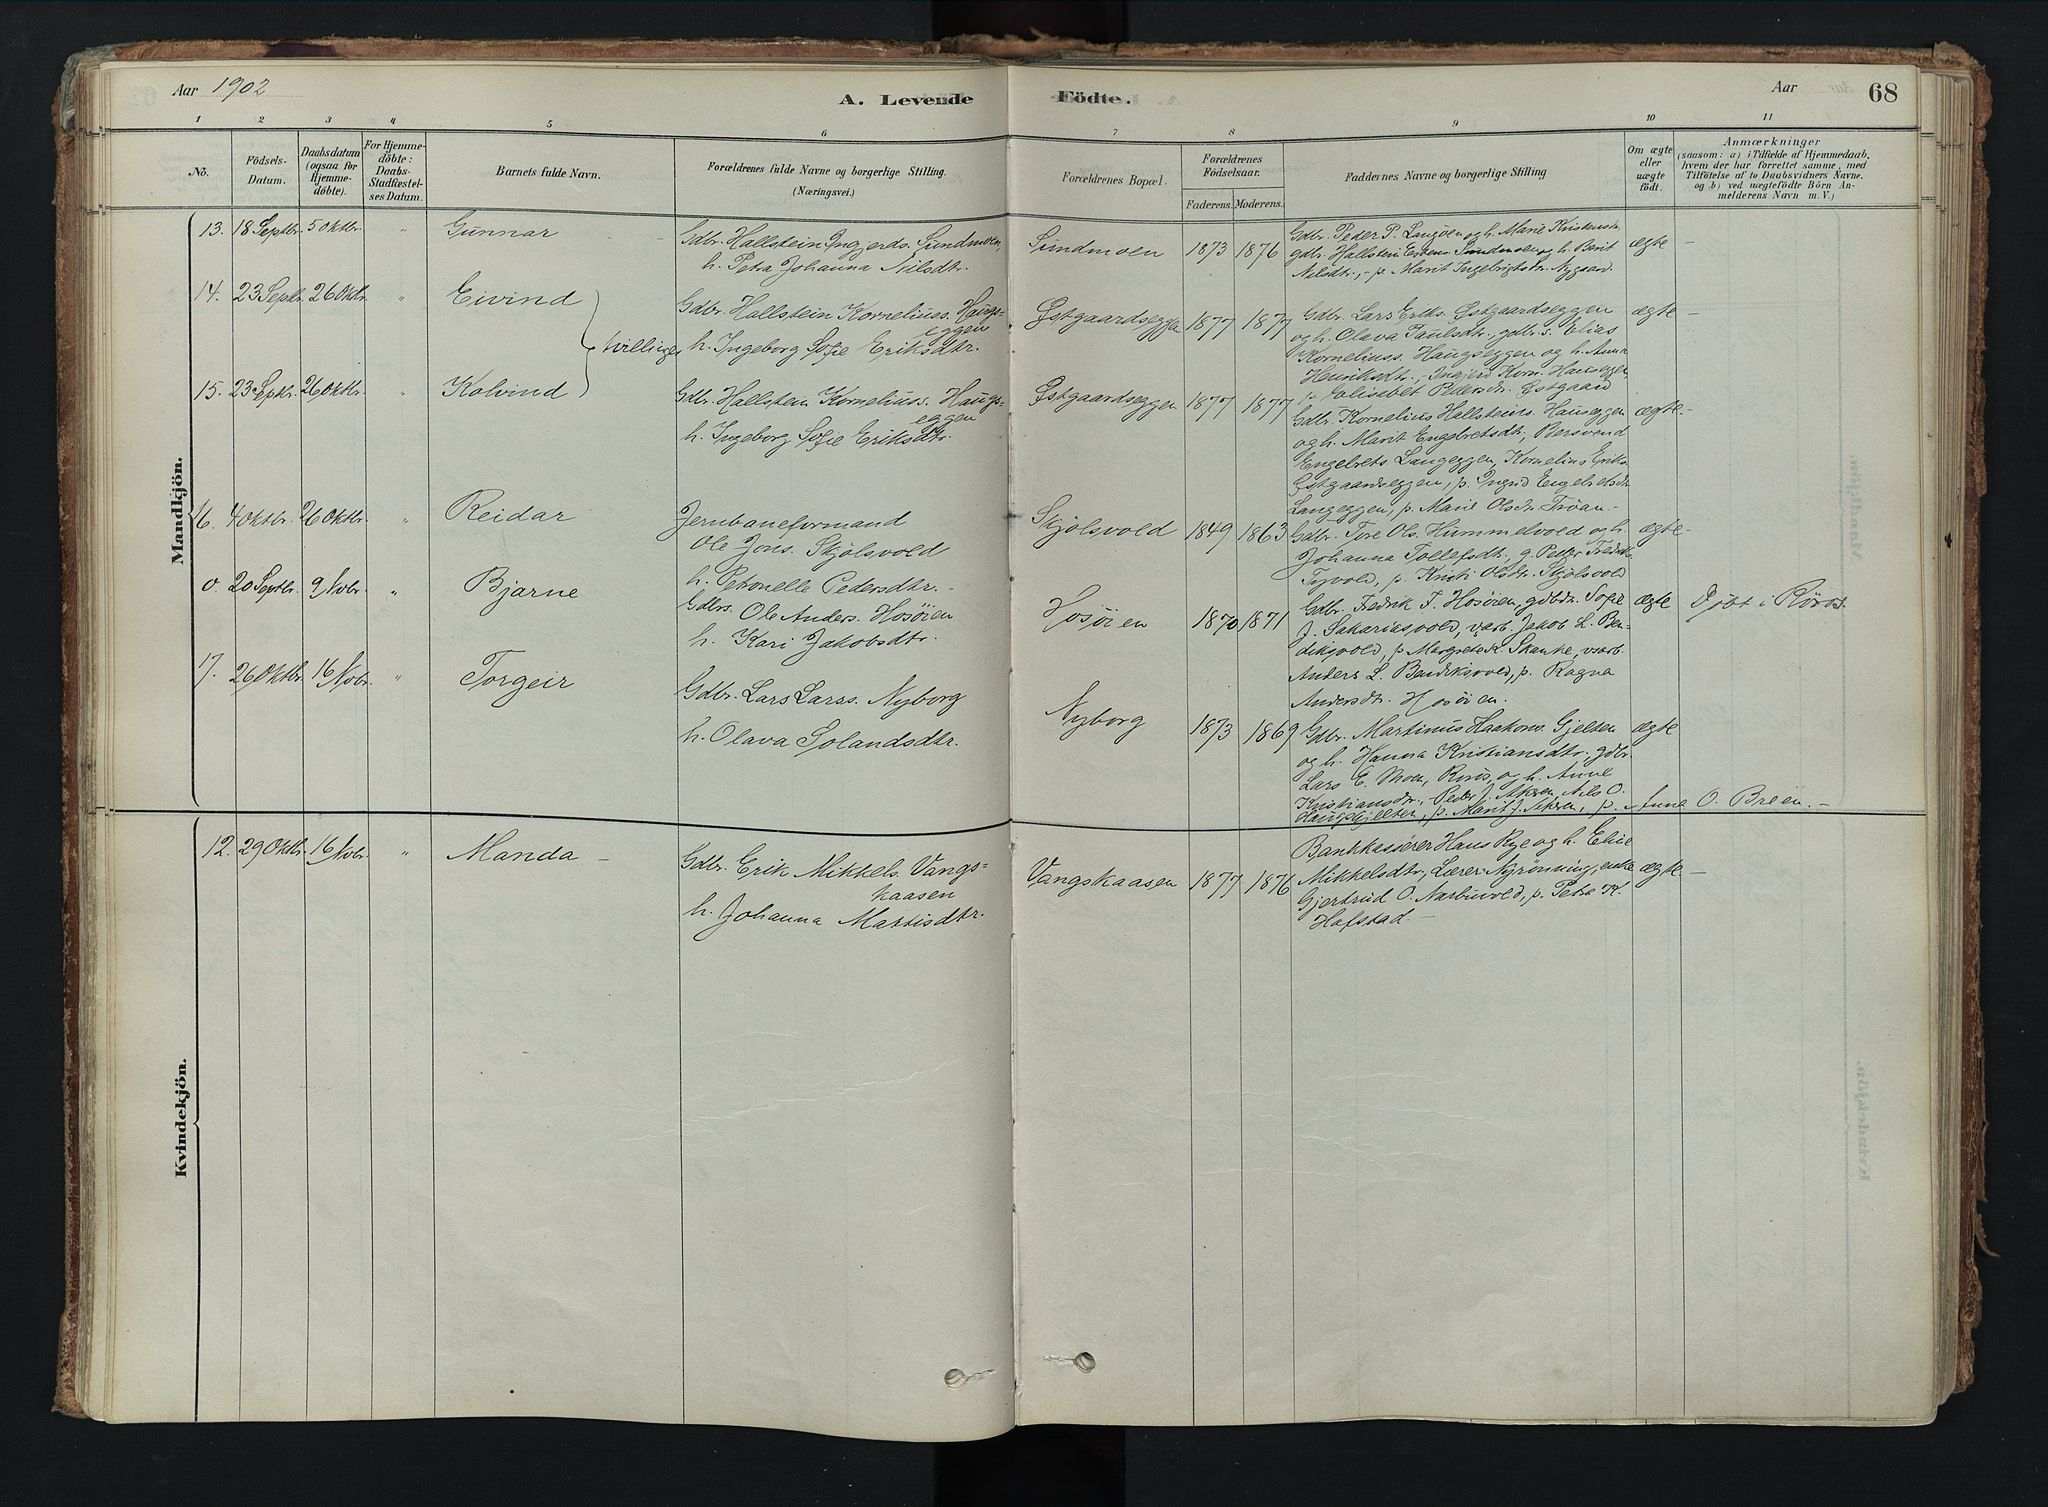 Aar 1902
A. Levende Födte.
Aar
68
1 2 3 4 5 6 7 8 9 10 11
No.
Födsels-
Datum.
Daabsdatum
(ogsaa for
Hjemme-
döbte).
For Hjemme-
döbte:
Daabs-
Stadfæstel-
ses Datum.
Barnets fulde Navn.
Forældrenes fulde Navne og borgerlige Stilling.
(Næringsvei.)
Forældrenes Bopæl.
Forældrenes
Födselsaar.
Faderens. Moderens.
Faddernes Navne og borgerlige Stilling
Om ægte
eller
uægte
födt.
Anmærkninger
(saasom: a) i Tilfælde af Hjemmedaab,
hvem der har forrettet samme, med
Tilföielse af to Daabsvidners Navne.
og b) ved uægtefödte Börn An-
melderens Navn m. V.)
Mandkjön.
13. 18 Septbr. 5 Oktbr. " Gunnar
Gdbr. Hallstein Ingjerds. Sundmoen,
h. Petra Johanna Nilsdtr.
Sundmoen 1873 1876
Gdbr. Peder P. Langøen og h. Marie Kristensdtr.
gdbr. Hallstein Estens. Sundmoen og h. Berit
Nilsdtr., - p. Marit Ingebrigtsdtr. Nygaard.
ægte -
14. 23 Septbr. 26 Oktbr. " Eivind
tvillinger
Gdbr. Hallstein Kornelius. Haugs-
eggen
h. Ingeborg Sofie Eriksdtr.
Østgaardseggen 1877 1877
Gdbr. Lars Eriks. Østgaardseggen
og h. Olava Paulsdtr., gdbr. s. Elias
Korneliuss. Haugseggen og h. Anna
Henriksdtr., - Ingjerd Korn. Haugseggen,
p. Elisabet Pedersdtr. Østgaard
ægte -
15. 23 Septbr. 26 Oktbr. " Kolvind
Gdbr. Hallstein Korneliuss. Haugs-
eggen
h. Ingeborg Sofie Eriksdtr.
Østgaardseggen 1877 1877
Gdbr. Kornelius Hallsteins. Hauseggen
og h. Marit Engebretsdtr., Bersvend
Engebrets. Langeggen, Kornelius Eriks.
Østgaardseggen, p. Ingrid Engebretsdtr.
Langeggen, p. Marie Olsdtr. Trøan. -
ægte -
16. 4 Oktbr. 26 Oktbr. " Reidar
Jernbaneformand
Ole Jons. Skjølsvold
h. Petronelle Pedersdtr. -
Skjølsvold 1849 1863
Gdbr. Tore Ols. Hummelvold og h.
Johanna Tollefsdtr., g. Petter Fredrik
Tyvold, p. Kristi Olsdtr. Skjølsvold
ægte -
0. 20 Septbr. 9 Novbr. " Bjarne
Gdbrs. Ole Anders. Hosøien
h. Kari Jakobsdtr.
Hosøien 1870 1871
Gdbr. Fredrik F. Hosøien, gdbdr. Sofie
J. Sakariasvold, varb. Jakob L. Ben-
diksvold, p. Margrete K. Skanke, varb.
Anders L. Bendiksvold, p. Ragna
Andersdtr. Hosøien.
ægte Døbt i Røros.
17. 26 Oktbr. 16 Novbr. " Torgeir
Gdbr. Lars Larss. Nyborg
h. Olava Solandsdtr.
Nyborg 1873 1869
Gdbr. Martinus Haakons. Gjelten
og h. Hanna Kristiansdtr., gdbr.
Lars E. Moen, Røros, og h. Anne
Kristiansdtr., Peder J. Aksen, Nils O.
Haugsgjelten, p. Marit J. Aksen, p. Anne O. Breen. -
ægte
Kvindekjön.
12. 29 Oktbr. 16 Novbr. " Manda -
Gdbr. Erik Mikkels. Vangs-
kaasen
h. Johanna Mattisdtr.
Vangskaasen 1877 1876
Bankkasserer Hans Rye og h. Elise
Mikkelsdtr., Lærer Nyrønning, enke
Gjertrud O. Narbuvold, p. Petra K.
Hafstad. -
ægte -